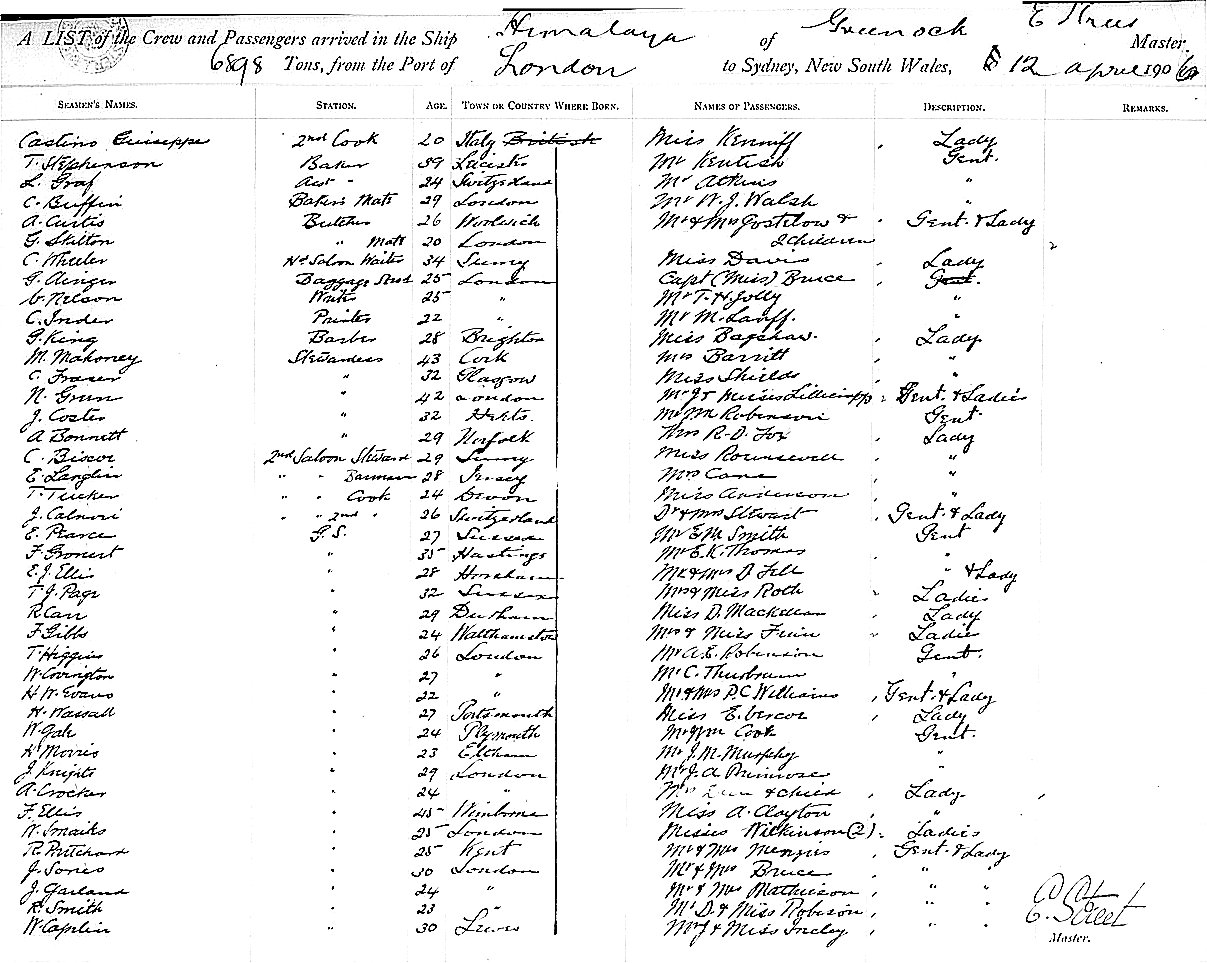 Himalaya of Greenock E Street Master.
A LIST of the Crew and Passengers arrived in the Ship
6898 Tons, from the Port of London to Sydney, New South Wales, 12 April 1906
SEAMEN'S NAMES. STATION. AGE. TOWN OR COUNTRY WHERE BORN. NAMES OF PASSENGERS. DESCRIPTION. REMARKS.
Castino Guiseppe 2nd Cook 20 Italy British Miss Kenniff Lady
T. Stephenson Baker 39 Mr Kentish Gent.
L. Graf Asst " 24 Switzerland Mr Atkins "
C. Buffin Baker's Mate 29 London Mr W. J. Walsh "
A. Curtis Butcher 26 Woolwich Mr & Mrs Gostelow & Gent. & Lady
G. Skilton " Mate 20 London 2 children 2
C. Wheeler Hd Saloon Waiter 34 Surrey Miss Davis Lady
G. Ainger Baggage Stwd 25 London Capt (Miss) Bruce Gent.
C. Nelson Writer 25 " Mr T. H. Jolly "
C. Inder Printer 22 " Mr M. "
G. King Barber 28 Brighton Miss Bagshaw. Lady
M. Mahoney Stewardess 43 Cork Mrs Barritt "
C. Fraser " 32 Glasgow Miss Shields "
N. Green " 42 London Mr J & Misses Gent. & Ladies
J. Coster " 32 Herts. Mr Robinson Gent.
A Bonnett " 29 Norfolk Mrs R. D. Fox Lady
C. Biscoe 2nd Saloon Steward 29 Surrey Miss Rounsevell "
E. Langlin " " Barman 28 Jersey Mrs Cane "
T. Tucker " " Cook 24 Devon Miss Anderson "
J. " " 2nd " 26 Switzerland Dr & Mrs Stewart Gent. & Lady
E. Pearce G. S. 27 Sussex Mr E M Smith Gent
F. Gronert " 35 Hastings Mr E. K. Thomas "
E. J. Ellis " 28 Horsham Mr & Mrs D Fell " & Lady
T. J. Page " 32 Sussex Mrs & Miss Roth Ladies
R. Carr " 29 Durham Miss D. Lady
F. Gibbs " 24 Walthamstow Mrs & Miss Ladies
T Higgins " 26 London Mr A. E. Robinson Gent.
W. Covington " 27 " Mr C. "
H W. Evans " 22 " Mr & Mrs P. C Williams Gent. & Lady
H. Wassall " 27 Portsmouth Miss E. Lady
W. Gale " 24 Plymouth Mr Wm Cook Gent.
H Morris " 23 Eltham Mr J. M. Murphy "
J. Knights " 29 London Mr J. A Primrose "
A. Crocker " 24 " Mrs & child Lady
F. Ellis " 45 Wimborne Miss A. Clayton "
W. Smaiks " 25 London Misses Wilkinson (2) Ladies
R. Pritchard " 25 Kent Mr & Mrs Menzies Gent. & Lady
J. Sories " 30 London Mr & Mrs Bruce " "
J. Garland " 24 " Mr & Mrs Mathieson " "
R. Smith " 23 " Mr D. & Miss Robison " "
W. Caplin " 30 Lewis Mr J & Miss " "
E. Street
Master.